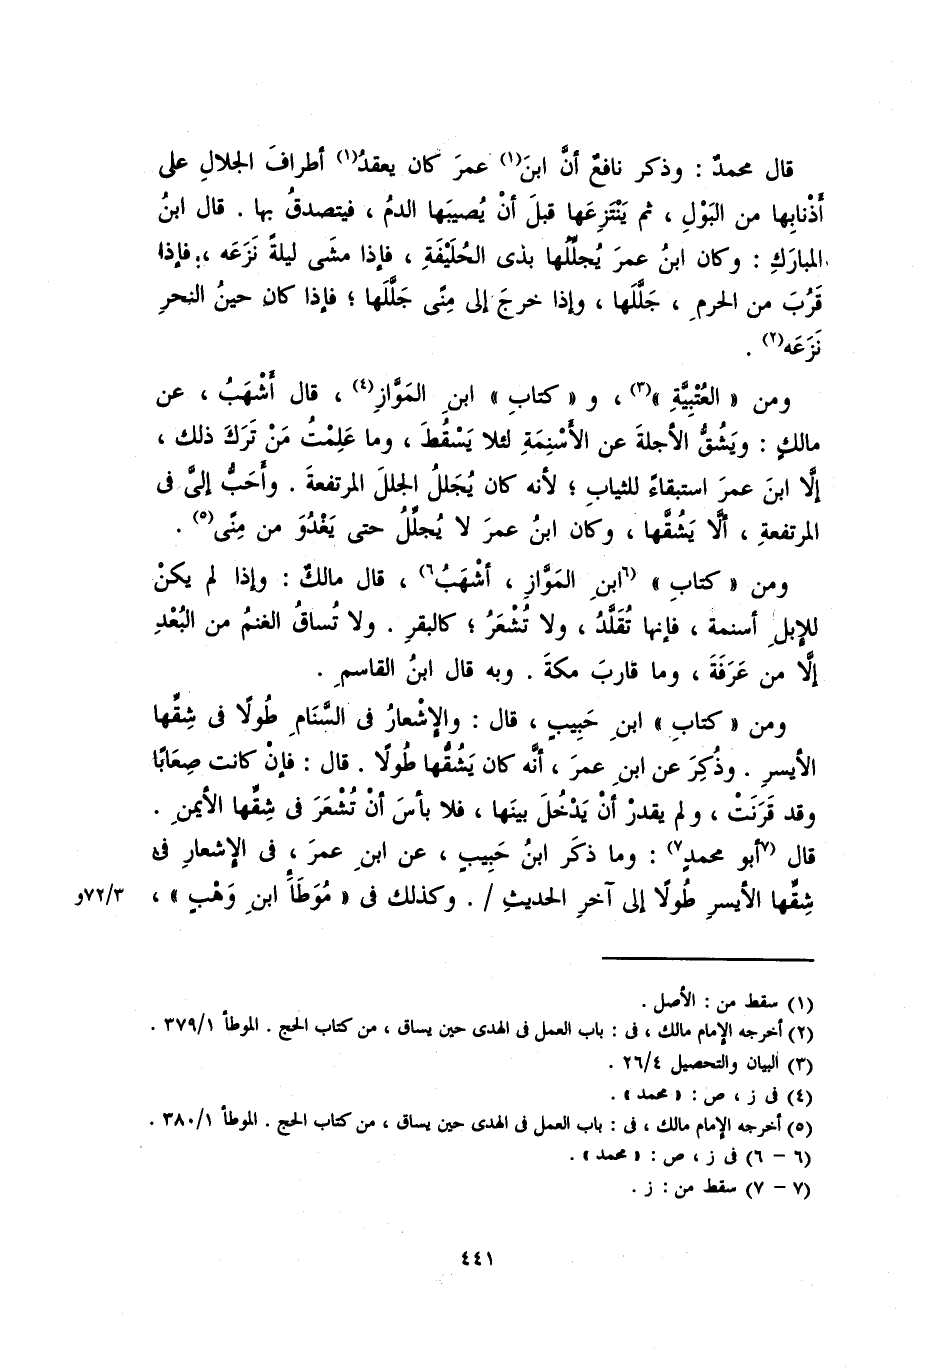 قال محمدٌ : وذكر نافعٌ أنَّ ابنَ(١) عمرَ كان يعقدُ(١) أطرافَ الجلالِ على
أَذْنابِها من البَوْلِ ، ثم يَنْتَزِعَها قبلَ أنْ يُصيبَها الدمُ ، فيتصدقُ بها . قال ابنُ
المبارَكِ : وكان ابنُ عمرَ يُجلِّلُها بذى الحُلَيْفَةِ ، فإذا مشَى ليلةً نَزَعَه ، فإذا
قَرُبَ من الحرمِ ، جَلَّلَها ، وإذا خرجَ إلى مِنًى جَلَّلَها ؛ فإذا كان حينُ النحرِ
نَزَعَه(٢) .
ومن « العُتْبِيَّةِ »(٣) ، و « كتابِ » ابنِ المَوَّازِ(٤) ، قال أَشْهَبُ ، عن
مالكٍ : ويَشُقُّ الأجلةَ عن الأَسْنِمَةِ لئلا يَسْقُطَ ، وما عَلِمْتُ مَنْ تَرَكَ ذلك ،
إلَّا ابنَ عمرَ استبقاءً للثيابِ ؛ لأنه كان يُجَللُ الجللَ المرتفعةَ . وأَحَبُّ إلىَّ فى
المرتفعةِ ، ألَّا يَشُقَّها ، وكان ابنُ عمرَ لا يُجلِّلُ حتى يَغْدُوَ من مِنًى(٥) .
ومن « كتابِ » (٦ابنِ المَوَّازِ ، أشْهَبُ٦) ، قال مالكٌ : وإذا لم يكنْ
للإبلِ أسنمة ، فإنها تُقَلَّدُ ، ولا تُشْعَرُ ؛ كالبقرِ . ولا تُساقُ الغنمُ من البُعْدِ
إلَّا من عَرَفَةَ ، وما قاربَ مكةَ . وبه قال ابنُ القاسمِ .
ومن « كتابِ » ابنِ حَبِيبٍ ، قال : والإشْعارُ فى السَّنَامِ طُولًا فى شِقِّها
الأيسرِ . وذُكِرَ عن ابنِ عمرَ ، أنَّه كان يَشُقُّها طُولًا . قال : فإنْ كانت صِعَابًا
وقد قَرَنَتْ ، ولم يقدرْ أنْ يَدْخُلَ بينَها ، فلا بأسَ أنْ تُشْعَرَ فى شِقِّها الأيمنِ .
قال (٧أبو محمدٍ٧) : وما ذكَر ابنُ حَبِيبٍ ، عن ابنِ عمرَ ، فى الإشعارِ فى
شِقِّها الأيسرِ طُولًا إلى آخرِ الحديثِ / . وكذلك فى « مُوَطَّأِ ابنِ وَهْبٍ » ، ٧٢/٣و
(١) سقط من : الأصل .
(٢) أخرجه الإمام مالك ، فى : باب العمل فى الهدى حين يساق ، من كتاب الحج . الموطأ ٣٧٩/١ .
(٣) البيان والتحصيل ٢٦/٤ .
(٤) فى ز ، ص : « محمد » .
(٥) أخرجه الإمام مالك ، فى : باب العمل فى الهدى حين يساق ، من كتاب الحج . الموطأ ٣٨٠/١ .
(٦ - ٦) فى ز ، ص : « محمد » .
(٧ - ٧) سقط من : ز .
٤٤١